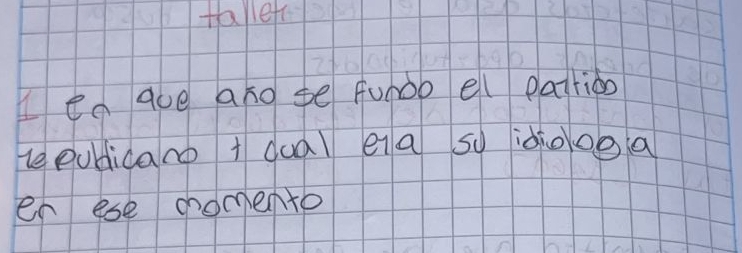 taller
1 en que año se fundo el partido
republicano y cual era su idiologia
en ese momento